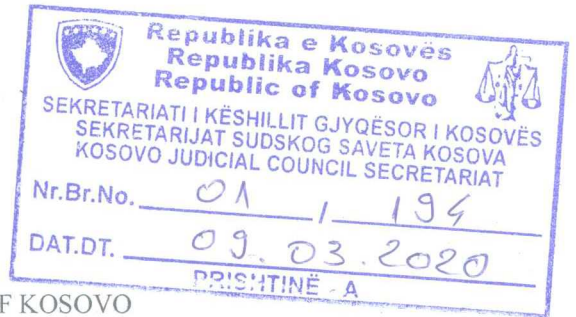 Republika e Kosovës
Republika Kosovo
Republic of Kosovo
SEKRETARIATI I KËSHILLIT GJYQËSOR I KOSOVËS
SEKRETARIJAT SUDSKOG SAVETA KOSOVA
KOSOVO JUDICIAL COUNCIL SECRETARIAT
Nr.Br.No. 01 / 194
DAT.DT. 09.03.2020
PRISHTINË - A
F KOSOVO